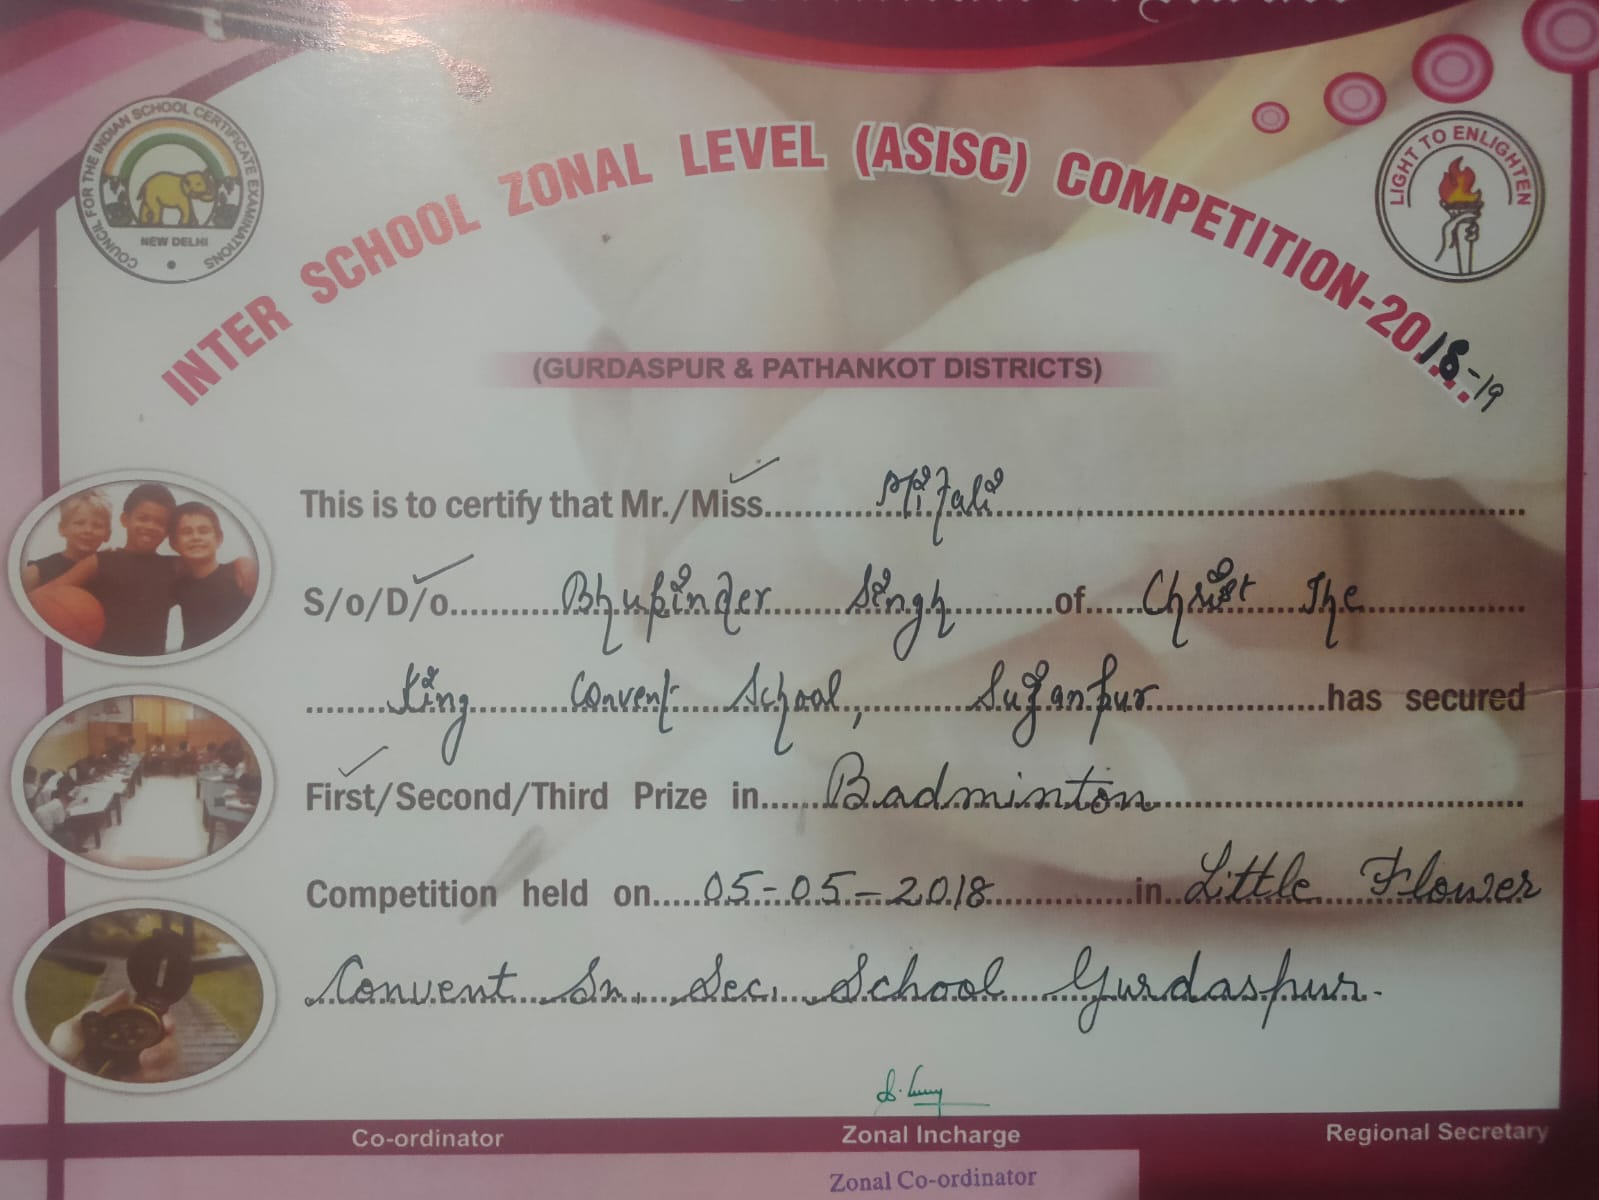 COUNCIL FOR THE INDIAN SCHOOL CERTIFICATE EXAMINATIONS
NEW DELHI
LIGHT TO ENLIGHTEN
INTER SCHOOL ZONAL LEVEL (ASISC) COMPETITION-2018-19
(GURDASPUR & PATHANKOT DISTRICTS)
This is to certify that Mr./Miss.......... Mitali ..........
S/o/D/o.......... Bhupinder Singh ..........of..... Christ The ..........
.......... King Convent School, Sujanpur ..........has secured
First/Second/Third Prize in...... Badminton ..........
Competition held on..... 05-05-2018 ..........in.. Little Flower
Convent Sn. Sec. School Gurdaspur.
Co-ordinator Zonal Incharge Regional Secretary
Zonal Co-ordinator